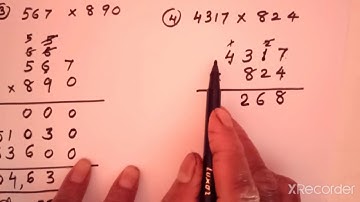 3) 567 × 890
5 5
6 6
5 6 7
× 8 9 0
0 0 0
5 1 0 3 0
3 6 0 0
4,6 3
④ 4317 × 824
× 2
4 3 1 7
8 2 4
2 6 8
LUXOR
XRecorder